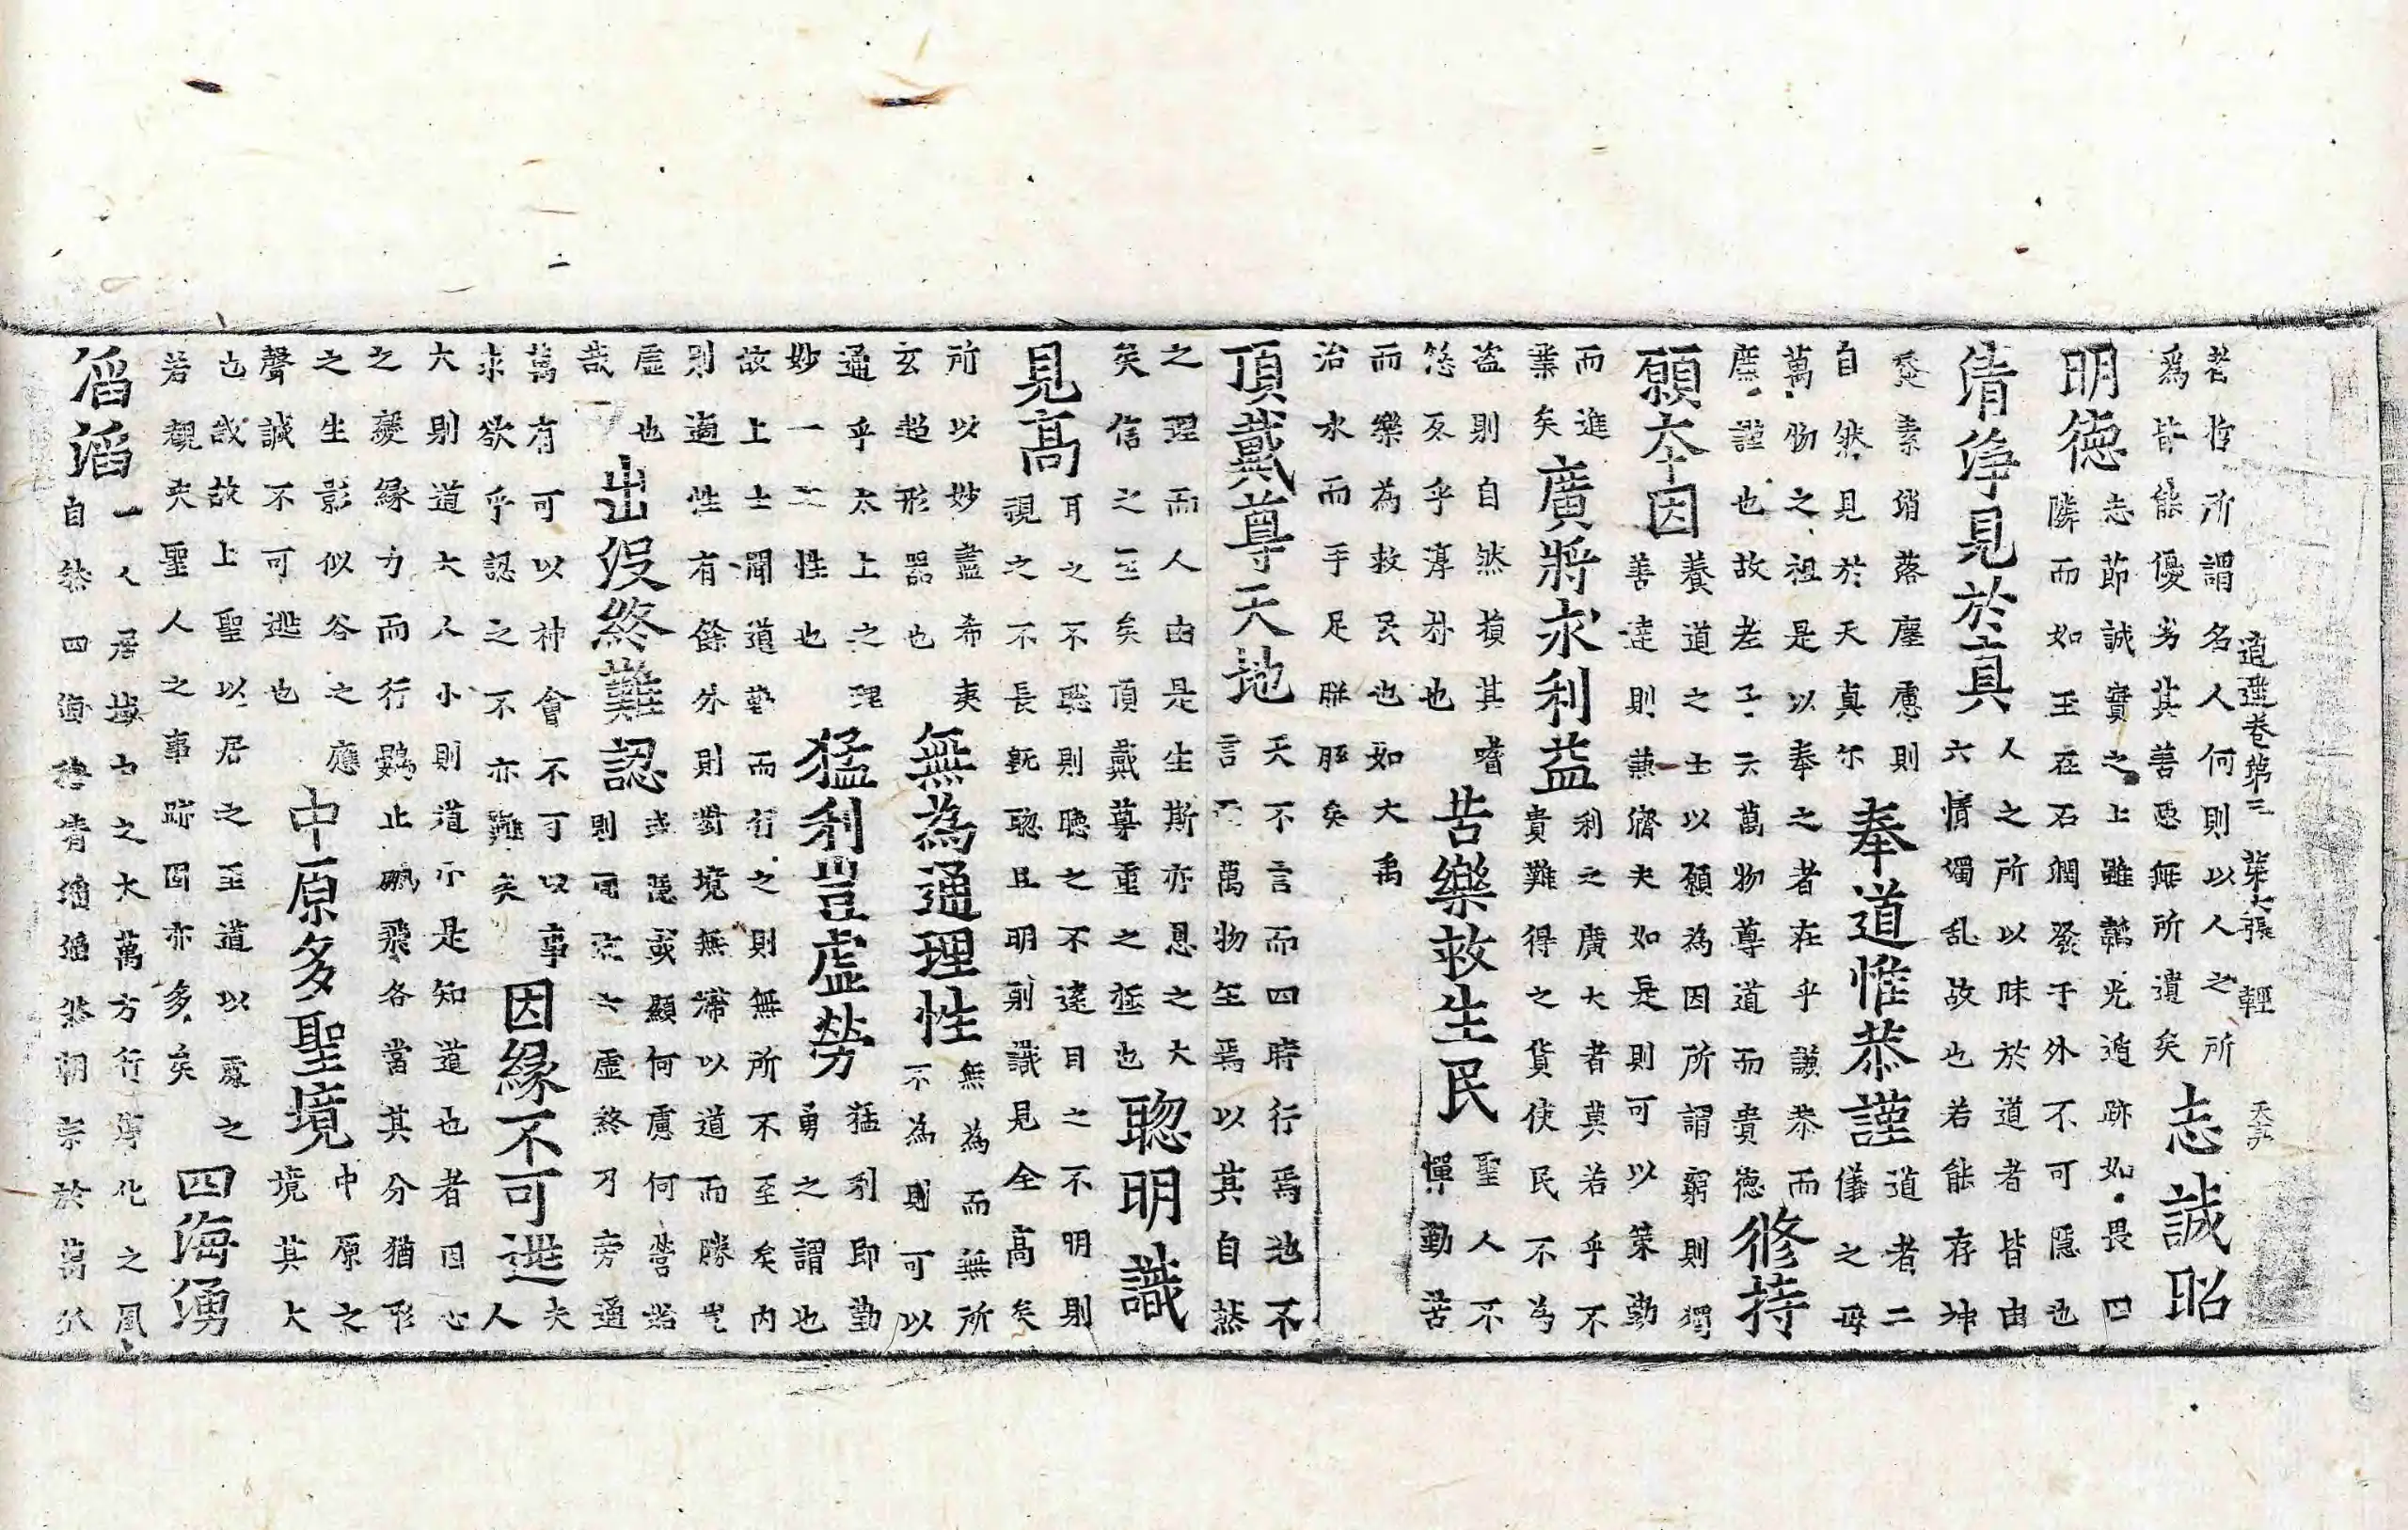 逍遥卷第三 第七張 輕
者哲所謂名人何則以人之所
爲皆能優劣其善惡無所遺矣
志誠昭
明德
志節誠實之上雖韜光遁跡如畏四
隣而如玉在石潤發于外不可隱也
清淨見於真
人之所以昧於道者皆由
六情濁乱故也若能存神
素消落塵慮則
自然見於天真尓
奉道惟恭謹
道者二
儀之毋
萬物之祖是以奉之者在乎謙恭而
謹也故老子云萬物尊道而貴德
修持
願夲因
養道之士以願為因所謂窮則獨
善達則兼濟夫如是則可以策勤
而進
業矣
廣將求利益
利之廣大者莫若乎不
貴難得之貨使民不為
盗則自然損其嗜
慾反乎淳朴也
苦樂救生民
聖人不
憚勤苦
而樂為救民也如大禹
治水而手足胼胝矣
頂戴尊天地
天不言而四時行焉地不
言而萬物生焉以其自然
之理而人由是生斯亦恩之大
矣信之至矣頂戴尊重之極也
聦明識
見高
耳之不聦則聽之不遠目之不明則
視之不長既聦且明則識見全高矣
所以妙盡希夷
玄超形器也
無為通理性
無為而無所
不為則可以
通乎太上之理
妙一之性也
猛利豈虛勞
猛利即勤
勇之謂也
故上士聞道勤而行之則無所不至矣内
則適性有餘外則對境無滯以道而勝豈
虛也
哉
出没終難認
或隱或顯何慮何營若
則 六虛終乃旁通
萬有可以神會不可以事
求欲乎認之不亦難矣
因緣不可逃
夫
人
大則道大人小則道小是知道也者因心
之變緣力而行鷃止鵬飛各當其分猶形
之生影似谷之應
聲誠不可逃也
中原多聖境
中原之
境其大
也哉故上聖以居之至道以處之
若觀夫聖人之事跡固亦多矣
四海湧
滔滔
一人居域中之大萬方行淳化之風
自然四海穆清滔滔然朝宗於萬派